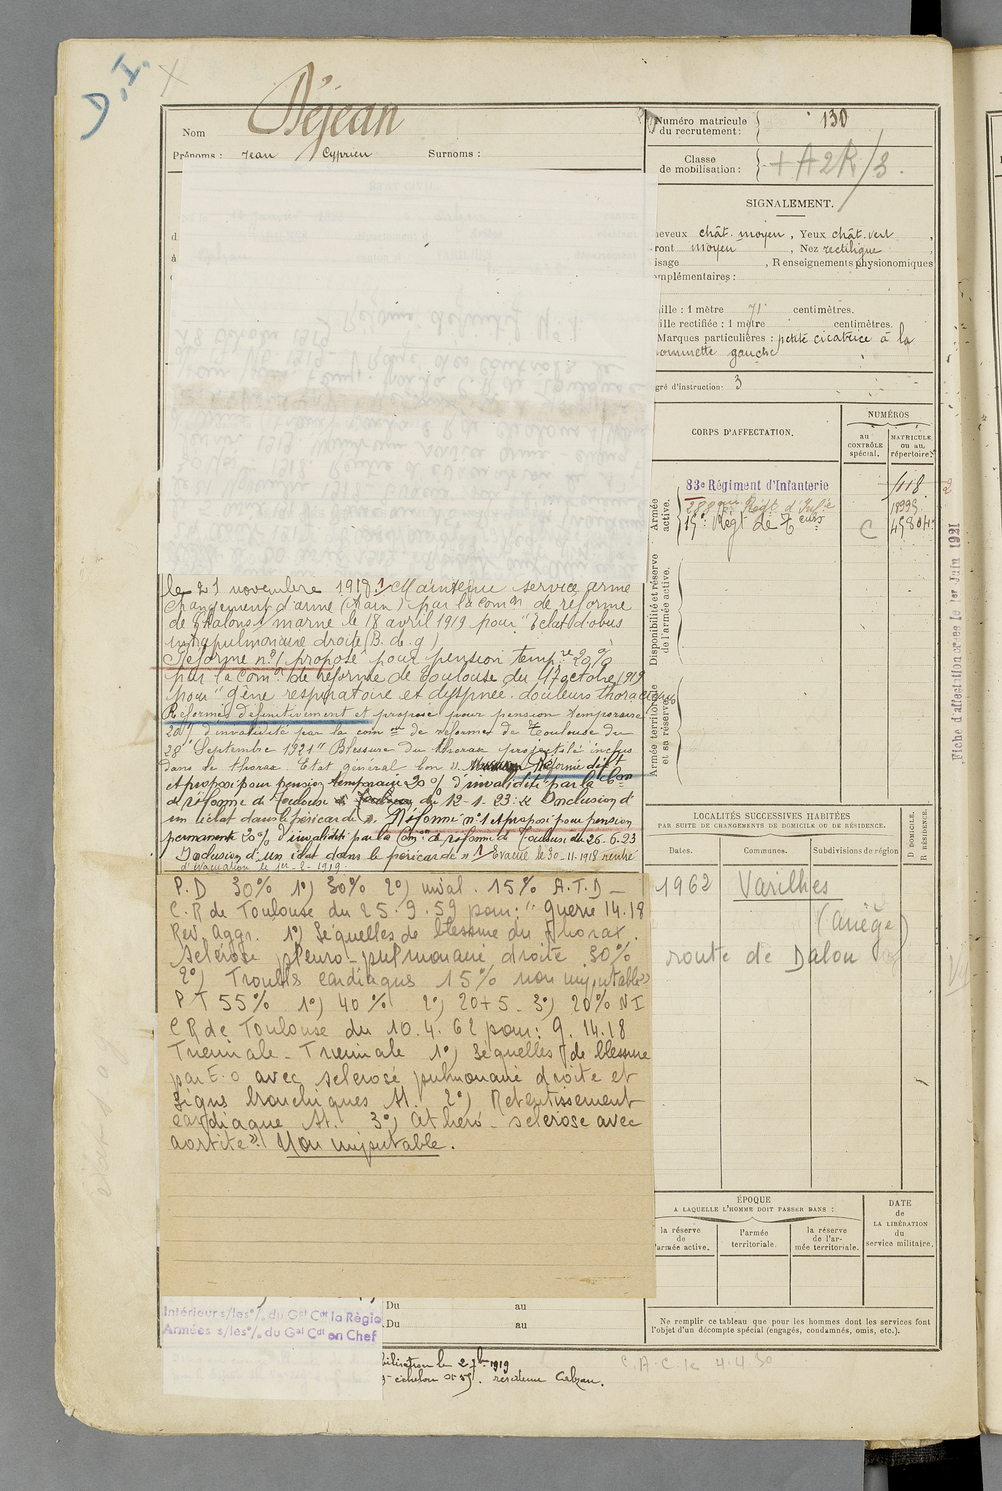 D.I.
Déjean
Nom
Prénoms : Jean Cyprien Surnoms :
Numéro matricule du recrutement : 130
Classe de mobilisation : + A2R/3.
SIGNALEMENT.
heveux chât. moyen, Yeux chât. vert,
ront moyen, Nez rectiligne
isage , Renseignements physionomiques
mplémentaires :
ille : 1 mètre 71 centimètres.
ille rectifiée : 1 mètre centimètres.
Marques particulières : petite cicatrice à la
pommette gauche
gré d'instruction : 3
CORPS D'AFFECTATION.
NUMÉROS
au CONTRÔLE spécial.
MATRICULE ou au répertoire.
Armée active.
83e Régiment d'Infanterie
288 Régt d'Inf ie
15e Régt de T eurs C
Disponibilité et réserve de l'armée active.
Armée territoriale et sa réserve.
Fiche d'affectation créée le 1er Juin 1921
le 21 novembre 1918. Maintenu service armé
changement d'arme (Train) par la com on de réforme
de Chalons s marne le 18 avril 1919 pour "Eclat d'obus
intrapulmonaire droite (B. d. g)
Réforme n° 1 proposé pour pension temp re 20%
par la com on de réforme de Toulouse du 17 octobre 1919
pour "gêne respiratoire et dyspnée. douleurs thoraciques
Réformé définitivement et proposé pour pension temporaire
20% d'invalidité par la com on de réforme de Toulouse du
28 Septembre 1921 "Blessure du thorax projectile inclus
dans le thorax. Etat général bon". Réformé déf t
et proposé pour pension temporaire 20% d'invalidité par la C on
de réforme de Toulouse du 12-1-23: "Inclusion d'
un éclat dans le péricarde". Réforme n° 1 et proposé pour pension
permanente 20% d'invalidité par la Com on de réforme de Toulouse du 26-6-23
"Inclusion d'un éclat dans le péricarde" Evacué le 30-11-1918 rentré
d'évacuation le 1er-2-1919.
P.D 30% 1°) 30% 2°) inval. 15% A.T.D –
C.R de Toulouse du 25.9.59 pour: "guerre 14.18
Rev. Aggr. 1°) Séquelles de blessure du thorax.
Sclérose pleuro-pulmonaire droite 30%
2°) Troubles cardiaques 15% non imputables"
P T 55% 1°) 40% 2°) 20+5 3°) 20% N I
CR de Toulouse du 10.4.62 pour: g. 14.18
Triennale - Triennale 1°) Séquelles de blessure
par E.O avec sclérose pulmonaire droite et
signes bronchiques At. 2°) Retentissement
cardiaque At. 3°) Athéro-sclérose avec
aortite". Non imputable.
LOCALITÉS SUCCESSIVES HABITÉES
PAR SUITE DE CHANGEMENTS DE DOMICILE OU DE RÉSIDENCE.
Dates. Communes. Subdivisions de région
D DOMICILE. R RÉSIDENCE.
1962 Varilhes
(Ariège)
route de Dalou
ÉPOQUE
A LAQUELLE L'HOMME DOIT PASSER DANS :
la réserve de l'armée active.
l'armée territoriale.
la réserve de l'armée territoriale.
DATE de LA LIBÉRATION du service militaire.
Ne remplir ce tableau que pour les hommes dont les services font
l'objet d'un décompte spécial (engagés, condamnés, omis, etc.).
Intérieur s/les °/. du Gal Cdt la Régio
Armées s/les °/. du Gal Cdt en Chef
Du au
Du au
bilisation le 2 7bre 1919
échelon n° 55. résidence Calzan.
C.A.C. le 4.4.30